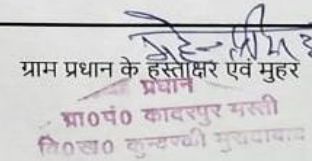 ग्राम प्रधान के हस्ताक्षर एवं मुहर
प्रधान
ग्रा०पं० कादरपुर मस्ती
वि०ख० कुन्दरकी मुरादाबाद